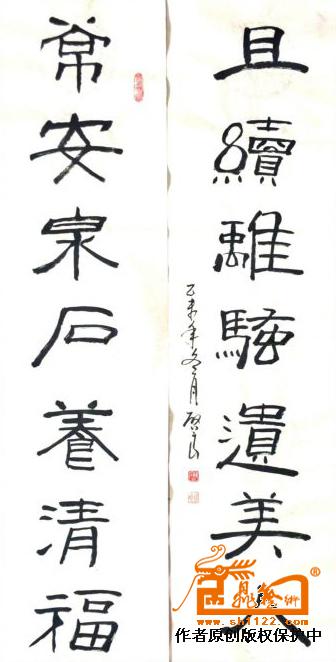 且續離騷遺美人
常安泉石養清福
乙未年冬月
www.sh1122.com
作者原创版权保护中